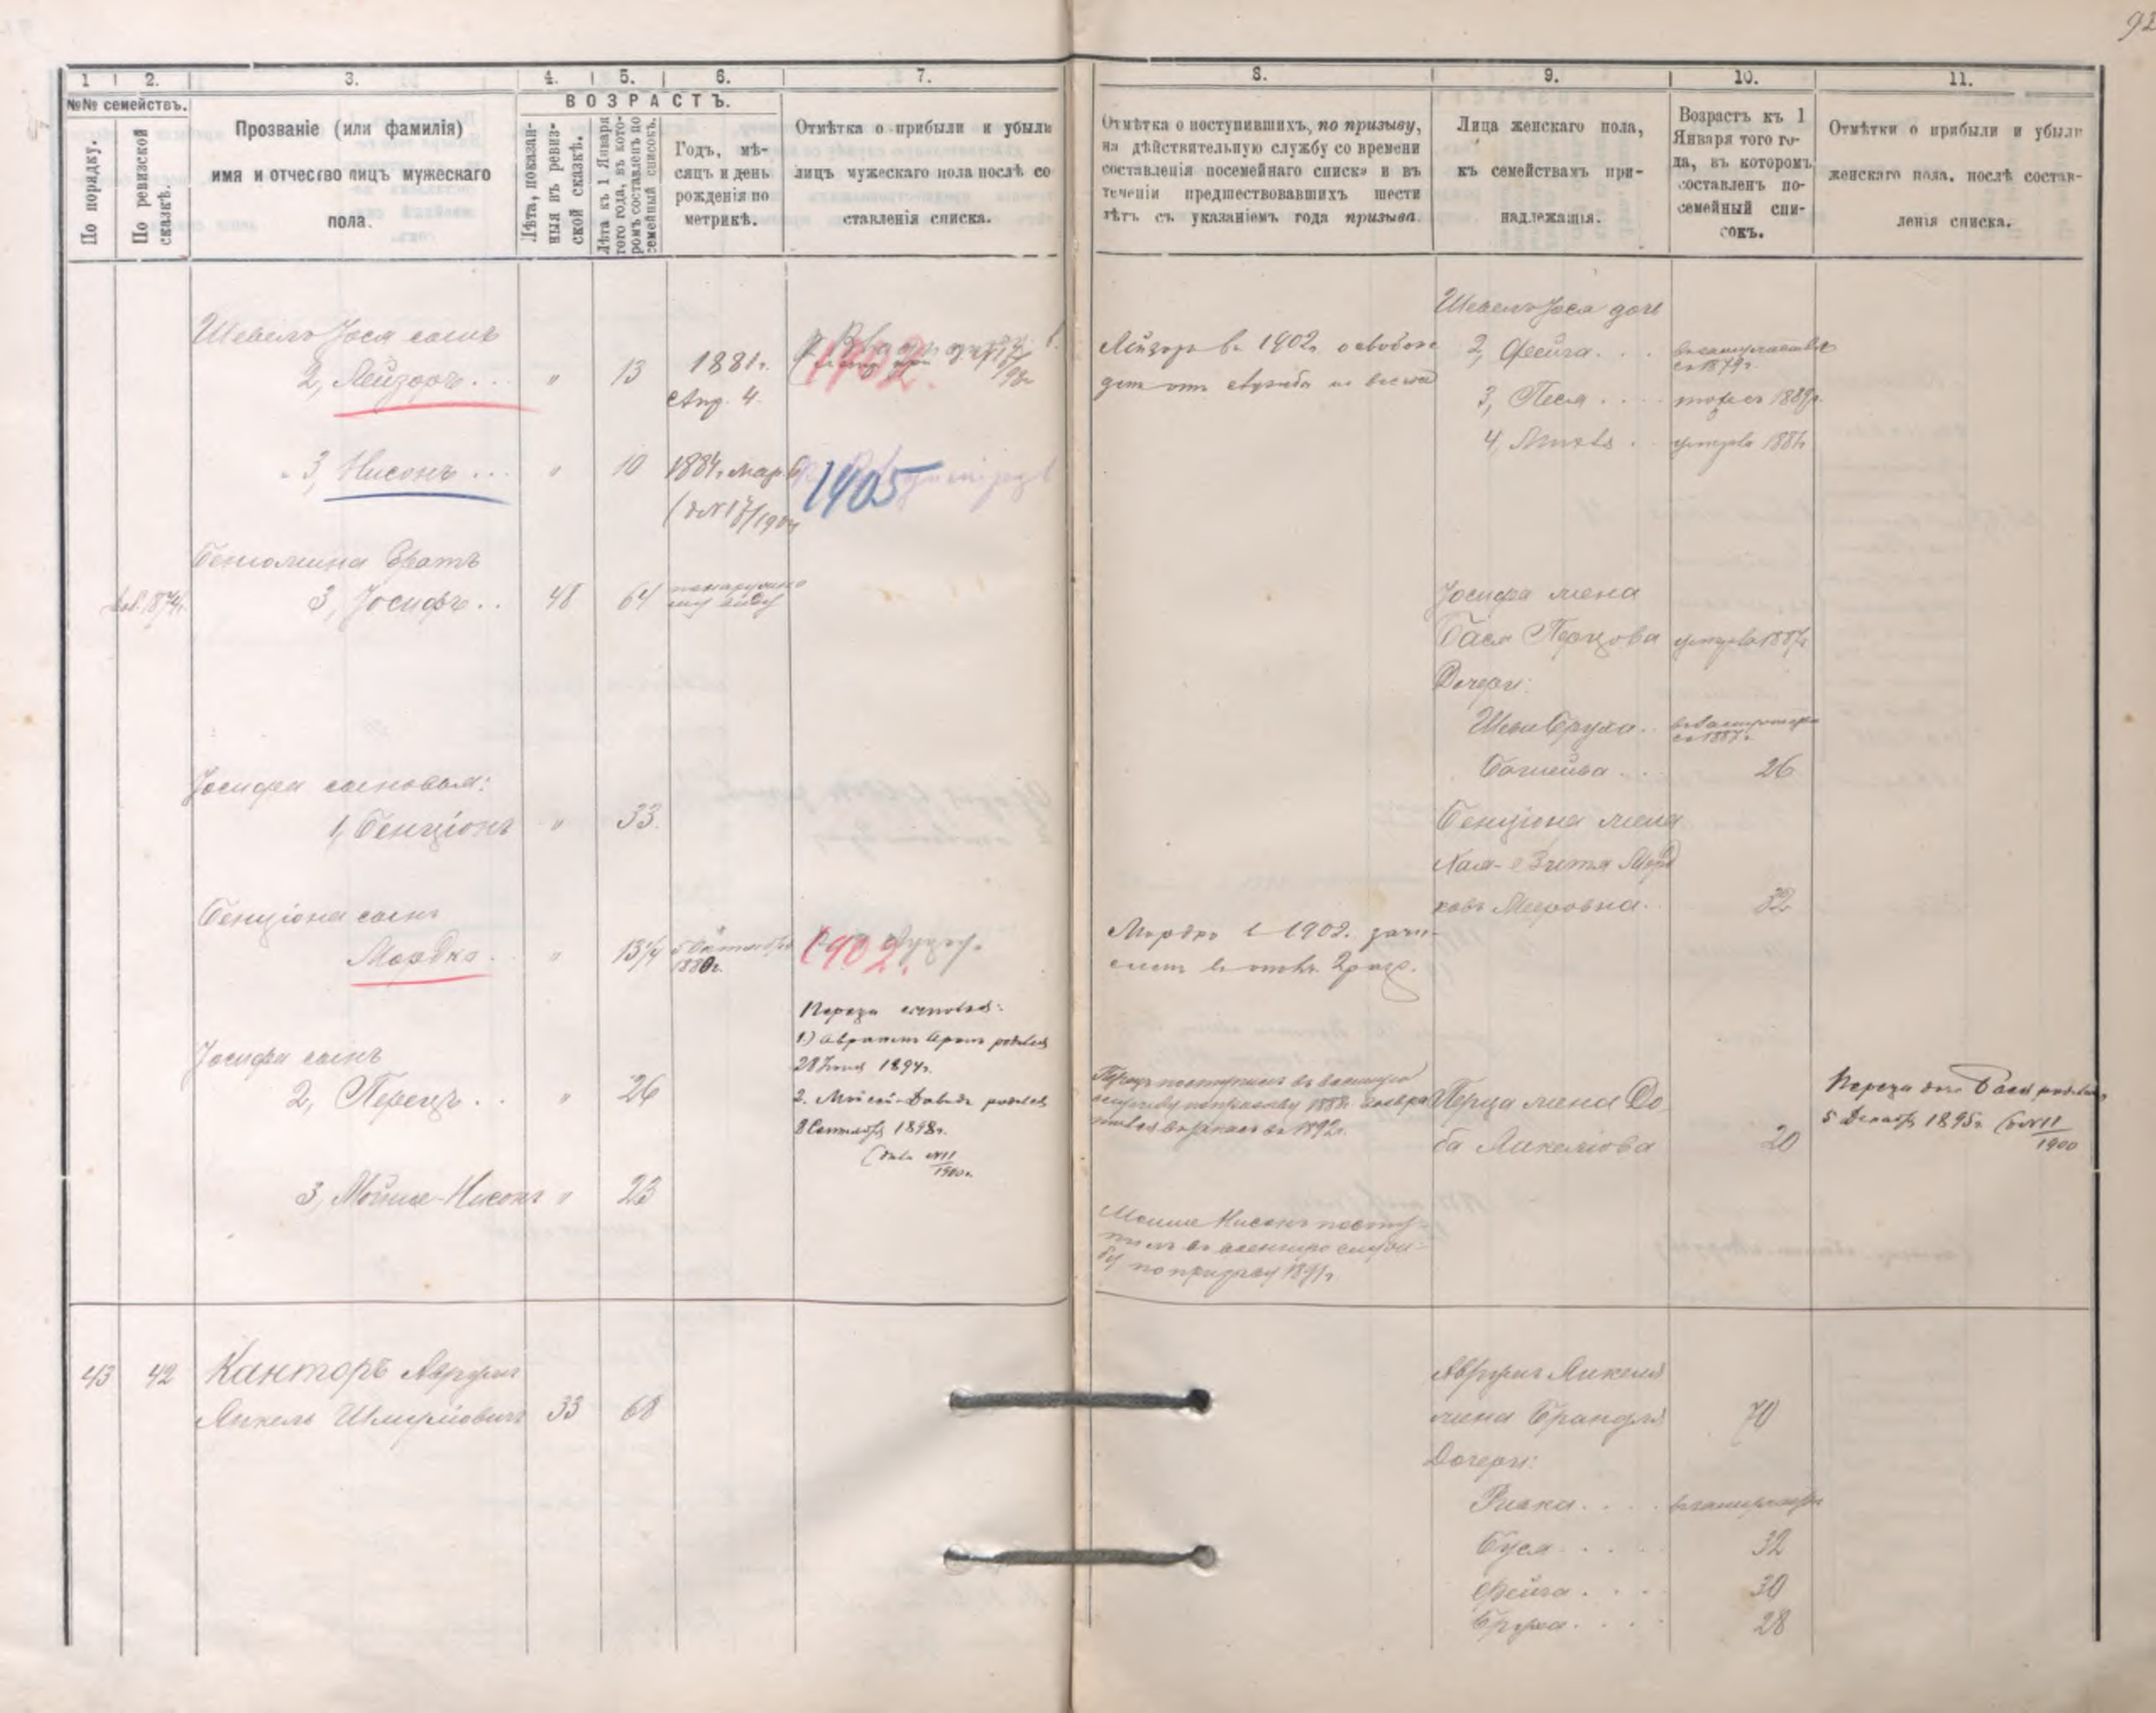 92
1 2. 3. 4. 5. 6. 7.
№№ семействъ.
По порядку.
По ревизской сказкѣ.
Прозваніе (или фамилія)
имя и отчество лицъ мужескаго
пола.
ВОЗРАСТЪ.
Лѣта, показан-
ныя въ ревиз-
ской сказкѣ.
Лѣта къ 1 Января
того года, въ кото-
ромъ составленъ по
семейный списокъ.
Годъ, мѣ-
сяцъ и день
рожденія по
метрикѣ.
Отмѣтка о прибыли и убыли
лицъ мужескаго пола послѣ со
ставленія списка.
Шевель Іося сынъ
2, Лейзоръ... " 13 1881г.
Апр. 4.
1902.
3, Нисонъ... " 10 1884г. Мар 6
1905
Бенюмина братъ
1874г. 3, Іосифъ.. 48 64
Іосифа сыновья:
1, Бенціонъ " 33.
Бенціона сынъ
Мордко. " 13¼
1880г.
1902.
Переца сыновья:
1.) Абрамъ Аронъ родился
28 1894г.
2. Мойсей-Давидъ родился
8 Сентября 1898г.
(дѣло №11
1900г.
Іосифа сынъ
2, Перецъ.. " 26
3, Мойше-Нисонъ " 23
43 42 Канторъ
Янкель Шмуйловичъ 33 68
8. 9. 10. 11.
Отмѣтка о поступившихъ, по призыву,
на дѣйствительную службу со времени
составленія посемейнаго списка и въ
теченіи предшествовавшихъ шести
лѣтъ съ указаніемъ года призыва.
Лица женскаго пола,
къ семействамъ при-
надлежащія.
Возрастъ къ 1
Января того го-
да, въ которомъ
составленъ по-
семейный спи-
сокъ.
Отмѣтки о прибыли и убыли
женскаго пола, послѣ состав-
ленія списка.
Лейзоръ въ 1902г. освобож
денъ отъ службы
Шевель Іося дочь
2, Фейга... въ замужествѣ
съ 1879г.
3, Песя.... тоже съ 1889г.
4, умерла
Іосифа жена
Бася Перцова умерла 1887г.
Дочери:
Шева Бруха.. въ замужествѣ
съ 1887г.
Башейва... 26
Бенціона жена
Мееровна. 32
Мордко въ 1902. зачи-
сленъ въ 2 разр.
Перецъ поступилъ въ военную
службу по призыву 1888г.
въ 1892г.
Перца жена До
ба Янкеліова 20
Переца дочь Бася родилась
5 Декабря 1895г. (дѣло №11
1900
Мойше Нисонъ посту-
пилъ въ военную служ-
бу по призыву 1891г.
Янкеля
жена Брандля 70
Дочери:
Ривка....
Буся..... 32
Фейга.... 30
Бруха.... 28